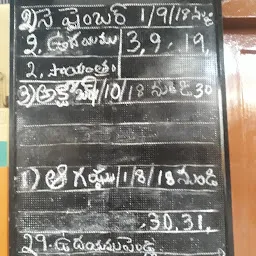 2) సెప్టెంబర్ 1/9/18
2. ఉదయము 3, 9, 19,
2, సాయంత్రం
3) అక్టోబర్ /10/18 నుండి 30
1) ఆగష్టు 1/8/18 నుండి
30, 31,
29. ఉదయము